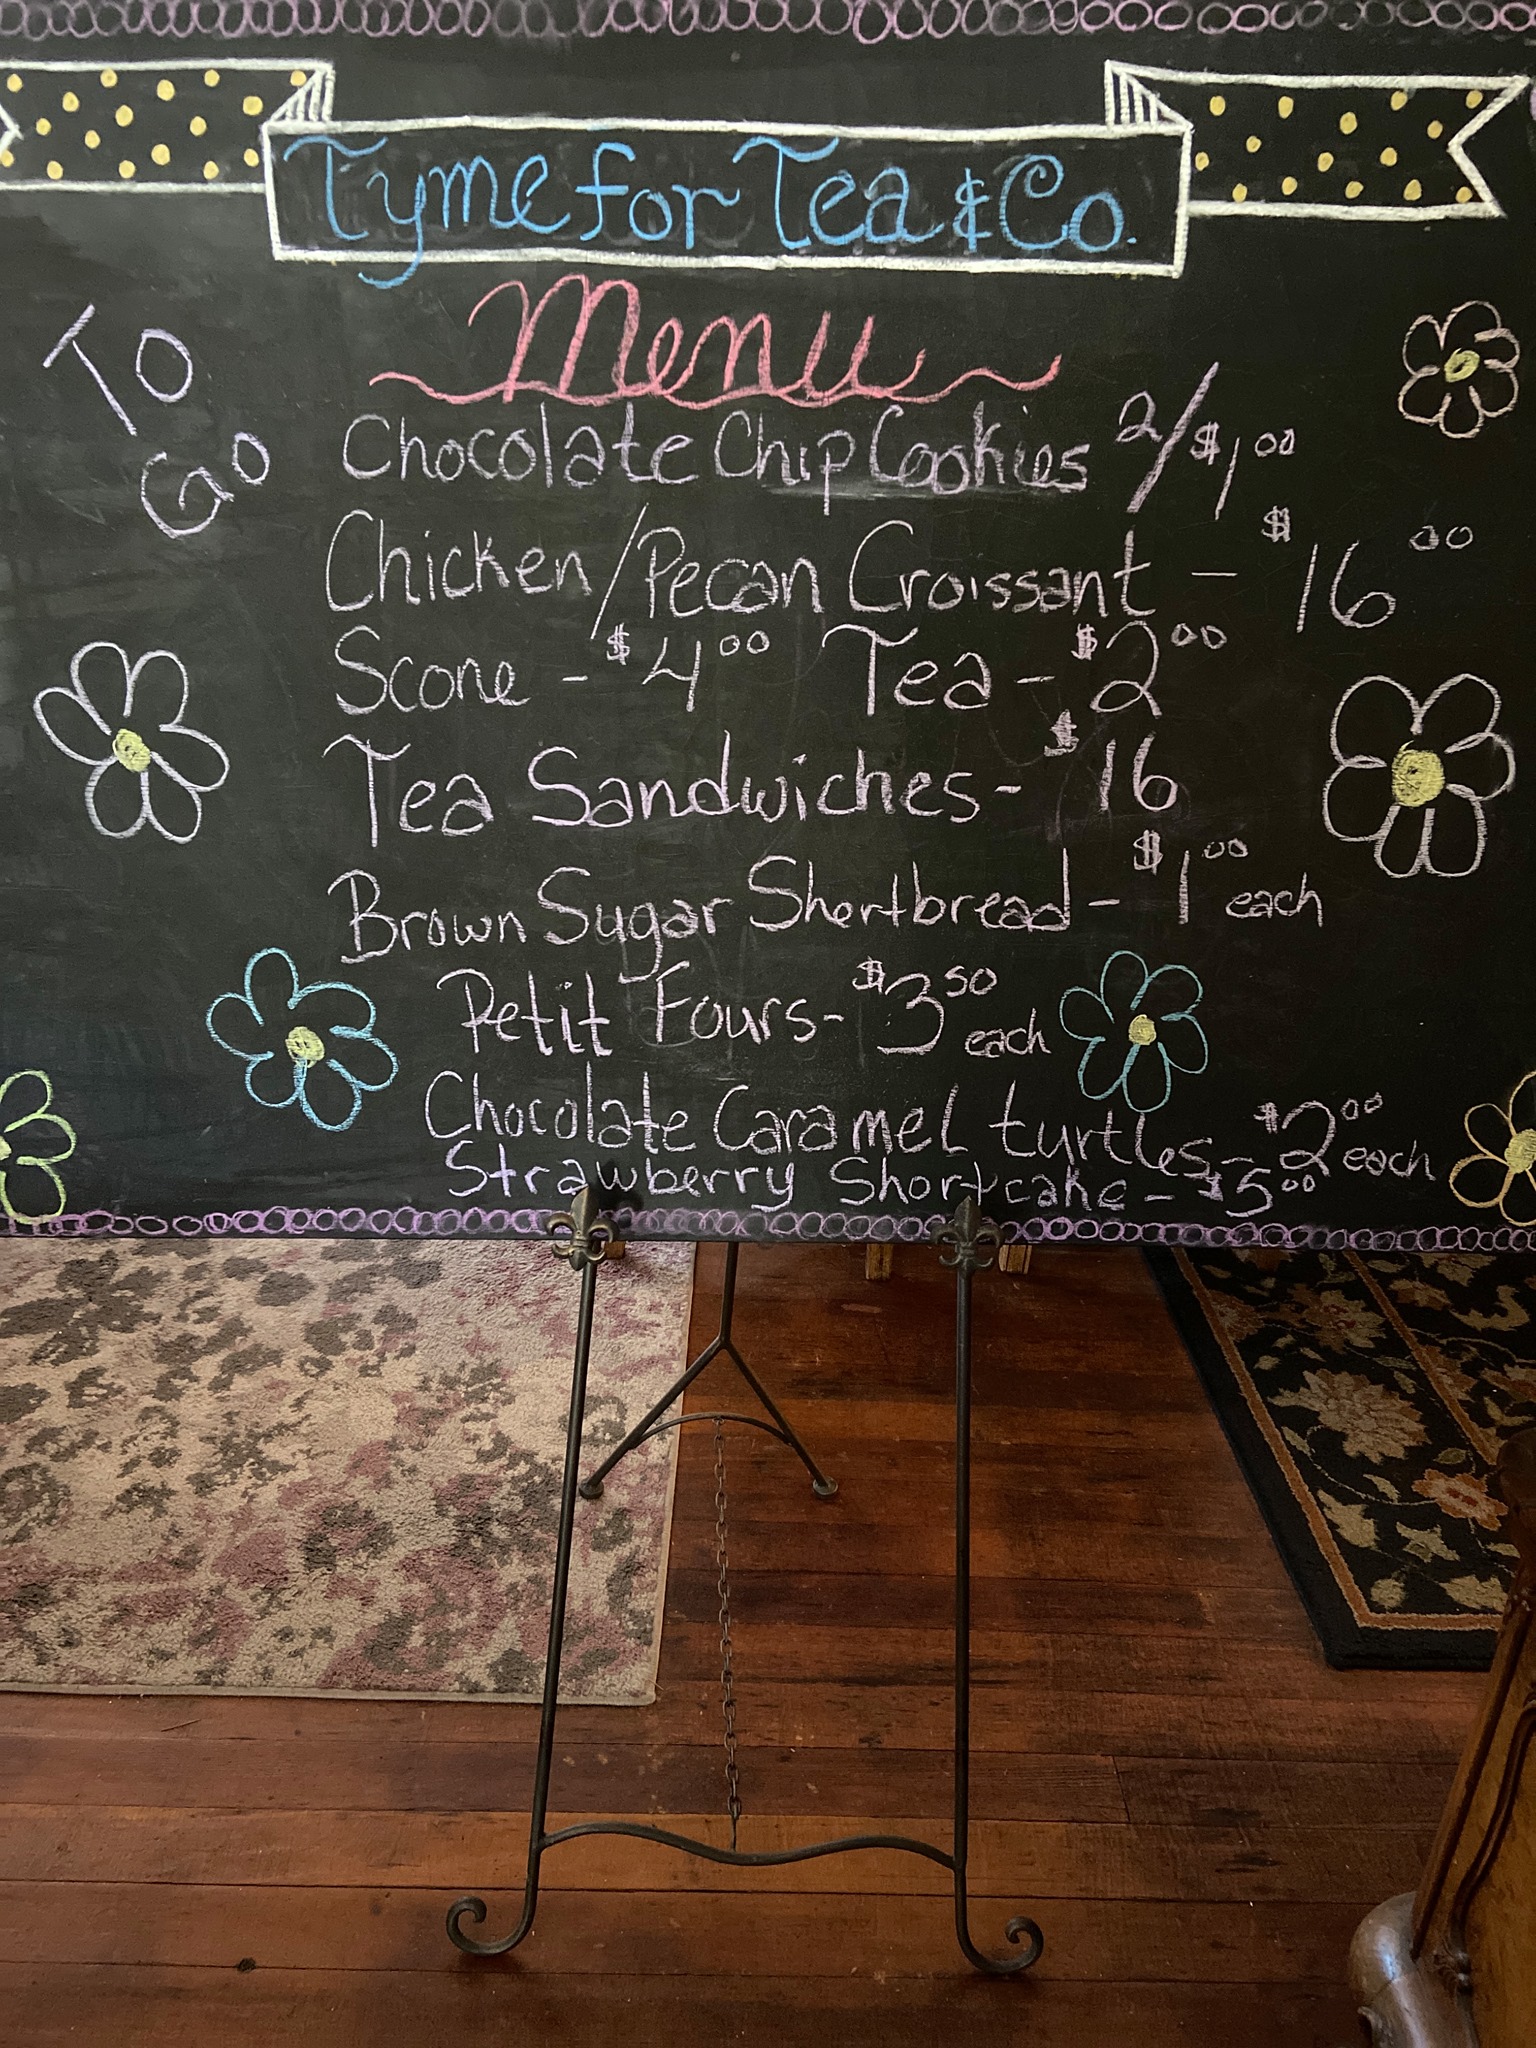 Tyme for Tea & Co.
Menu
To
Go
Chocolate Chip Cookies 2/$1.00
Chicken/Pecan Croissant - $16.00
Scone - $4.00 Tea - $2.00
Tea Sandwiches - $16
Brown Sugar Shortbread - $1.00 each
Petit Fours - $3.50 each
Chocolate Caramel turtles - $2.00 each
Strawberry Shortcake - $5.00